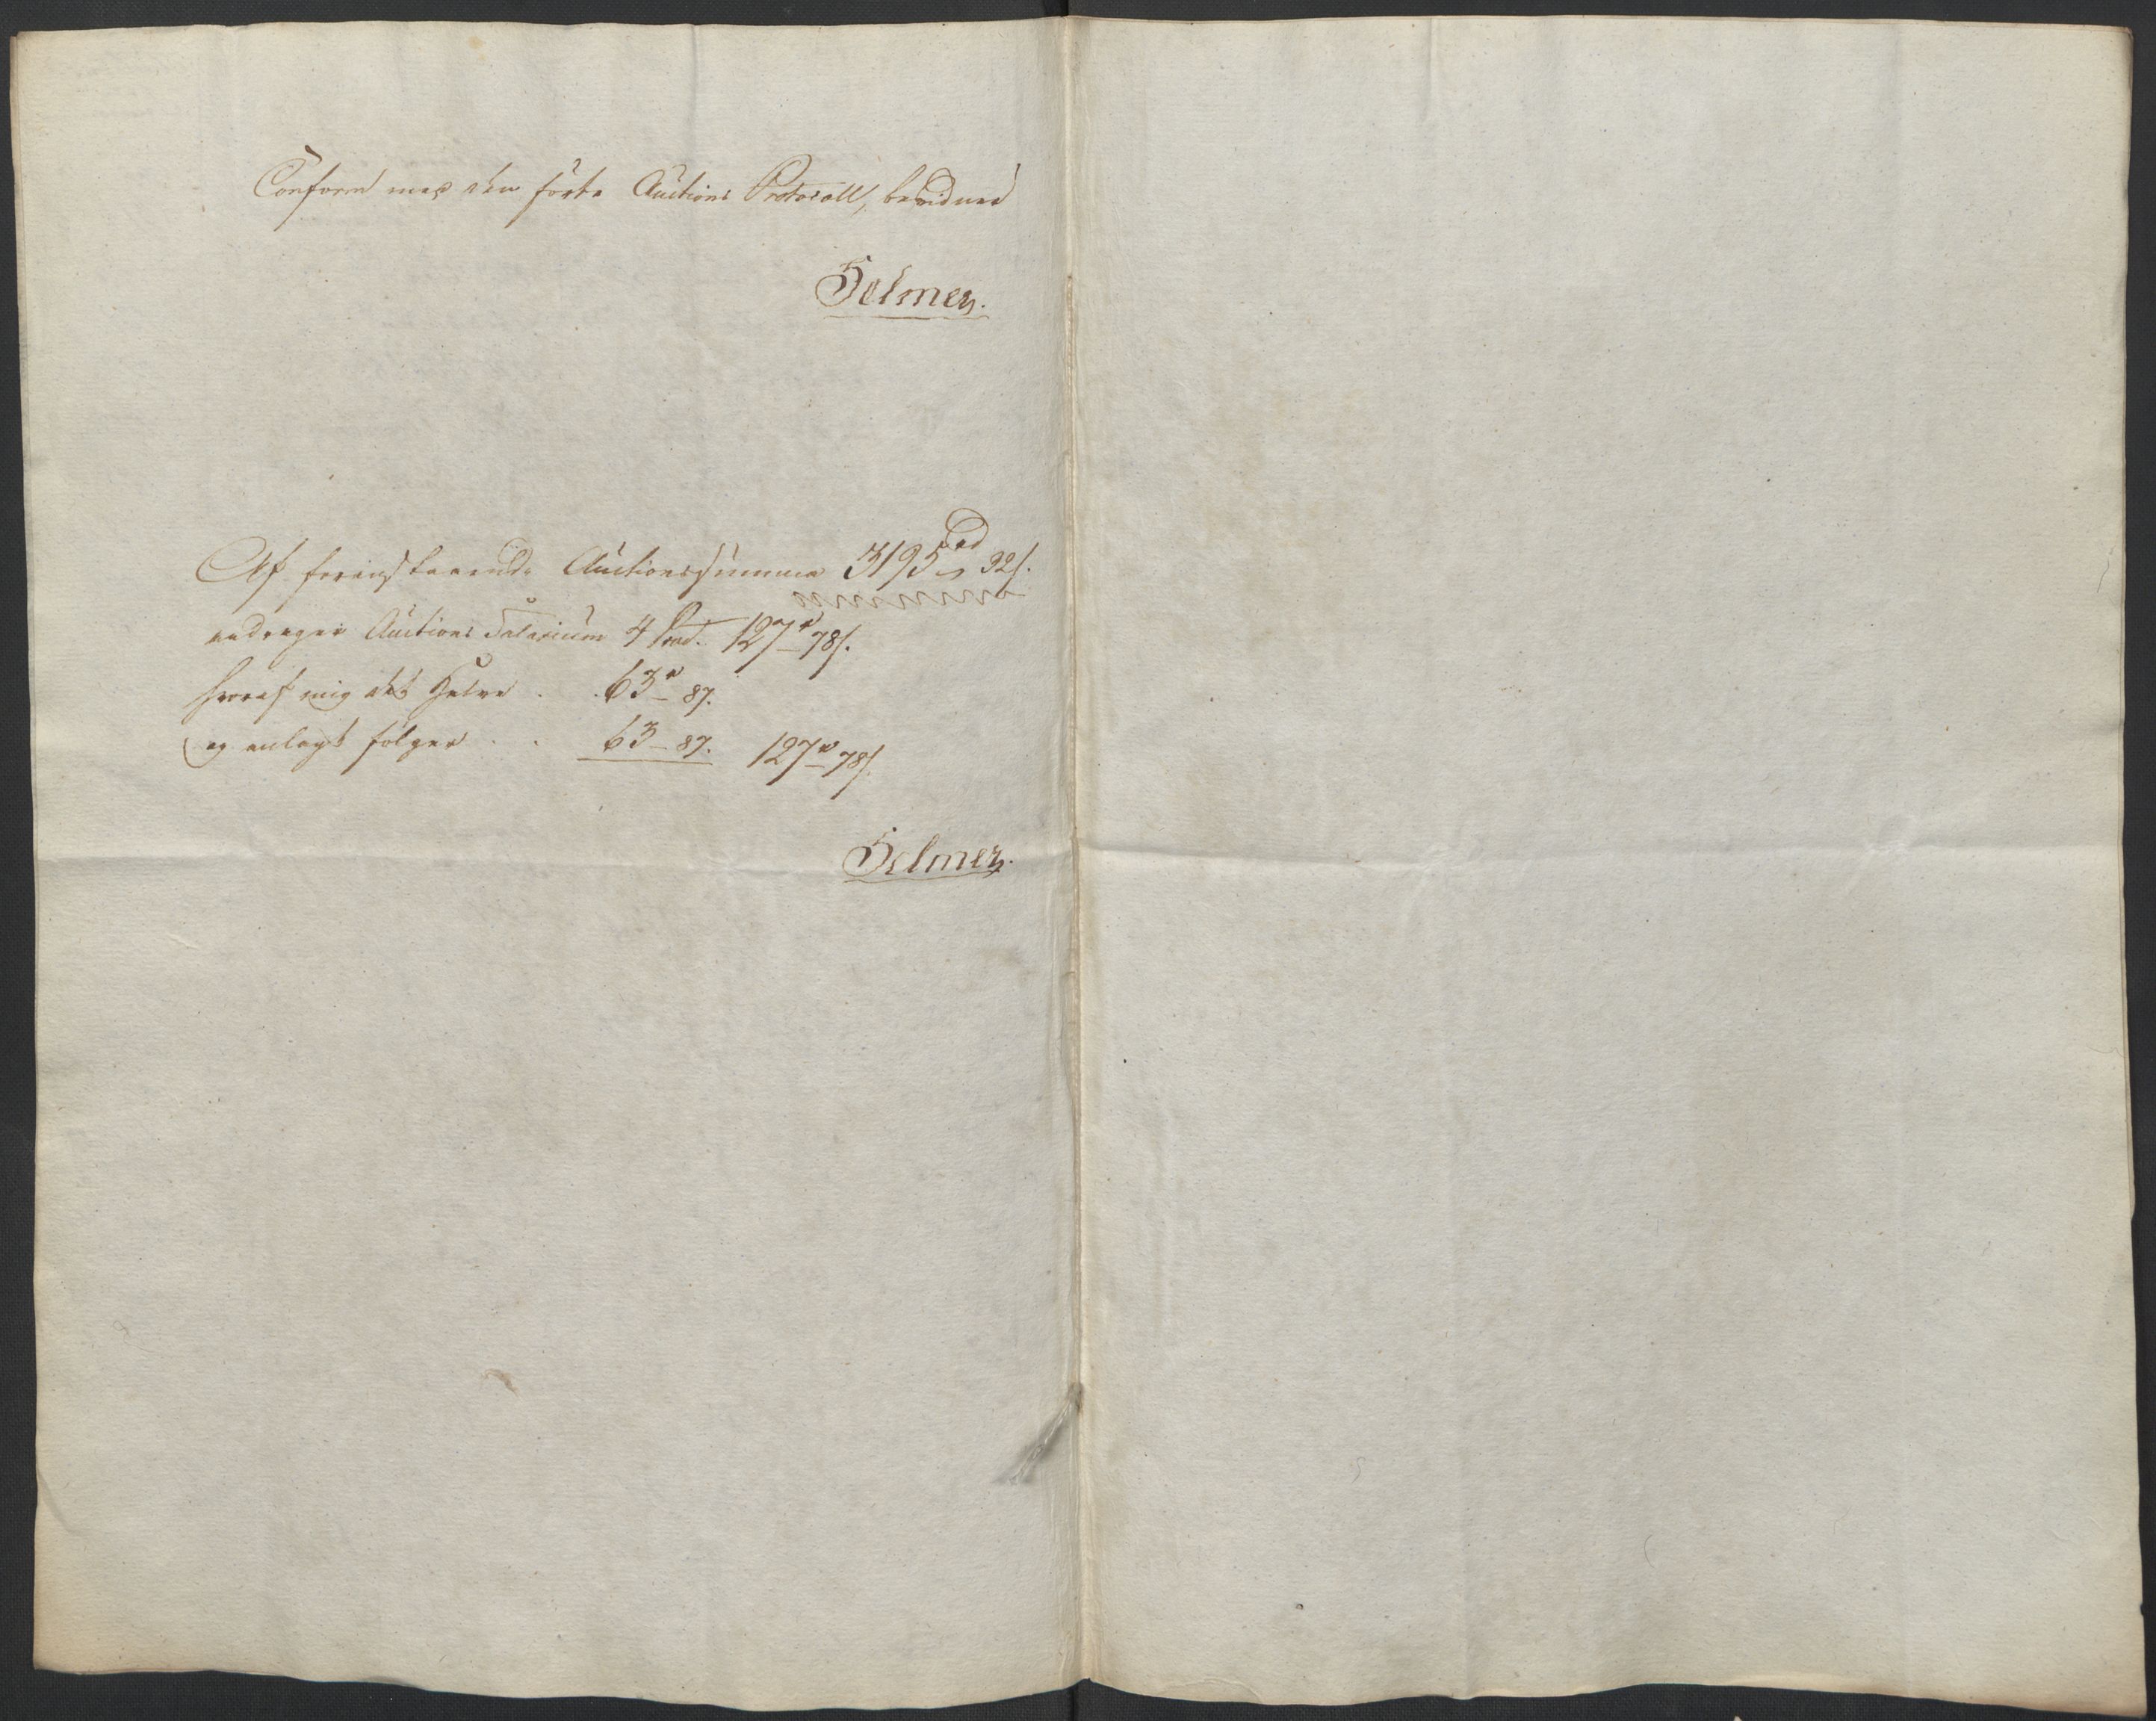 Conform med den förte Auctions Protocoll, bevidner
Selmer.
Af foranstaaende Auctionssumma 3195 rd 32 s.
andrager Auctions Salarium 4 Proct. 127 r 78 s.
hvoraf mig det Halve . . 63 r 87.
og anlagt følger . . 63 - 87. 127 r 78 s.
Selmer.